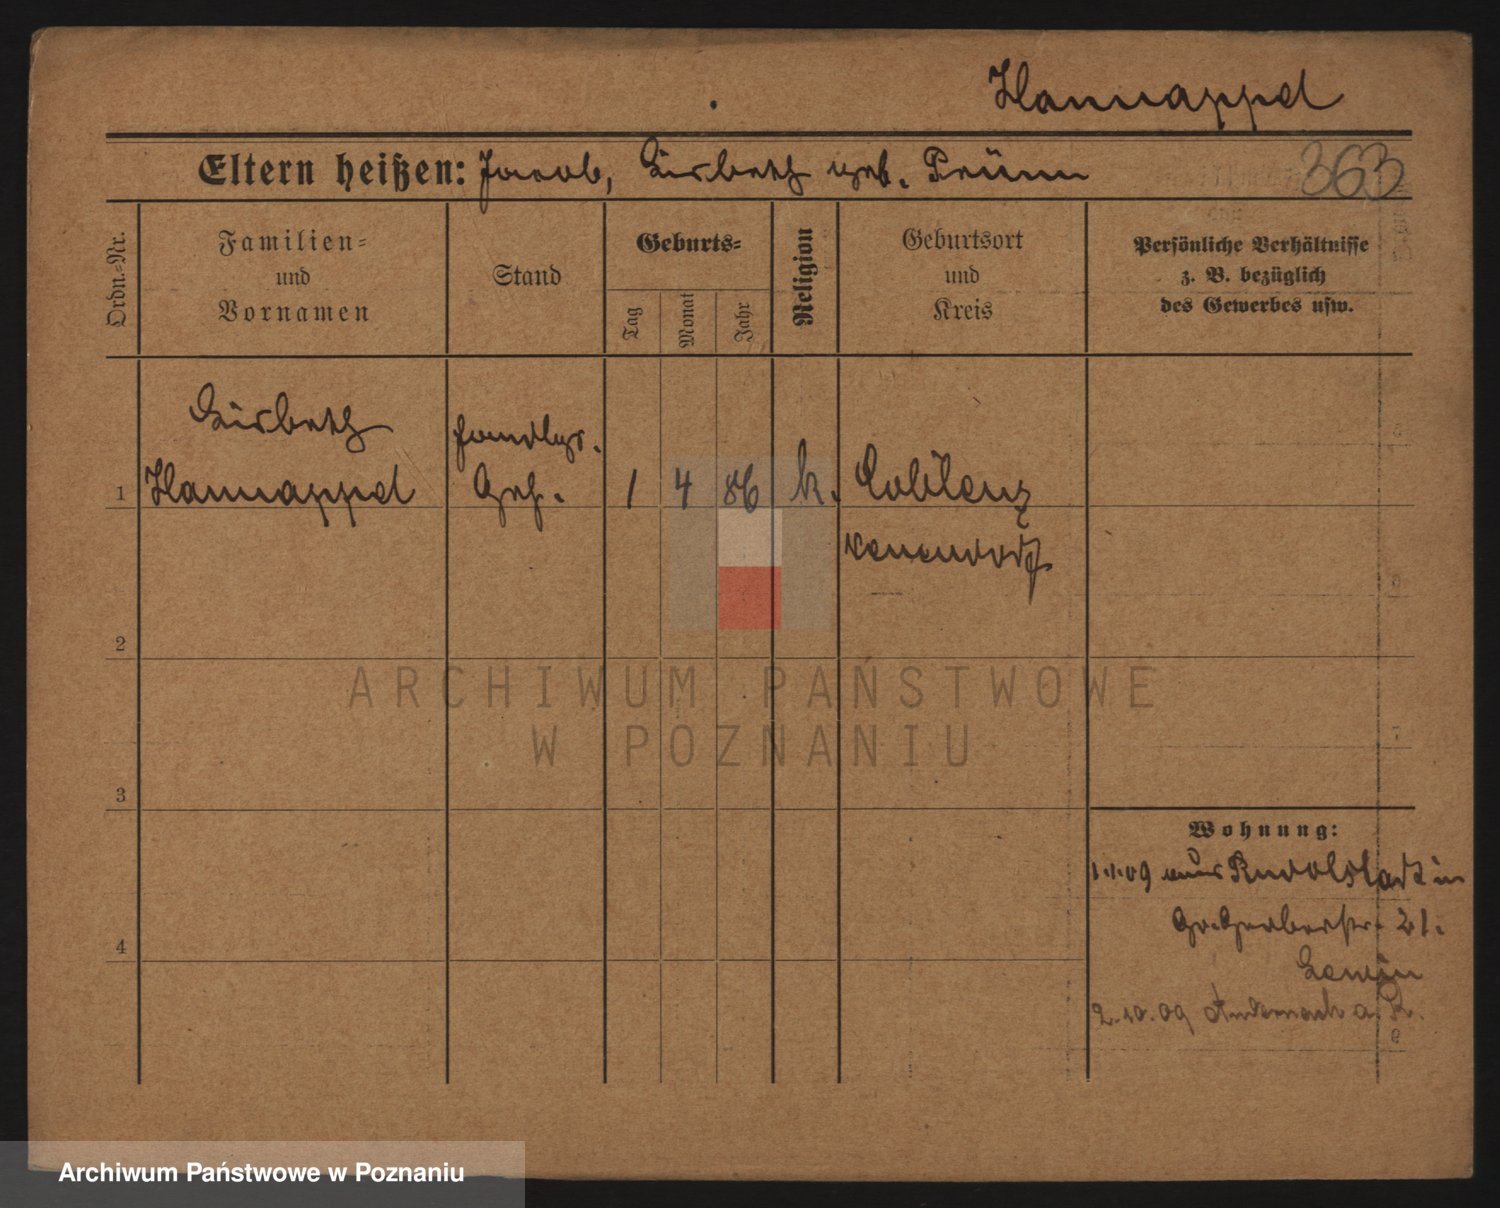 Hannappel
Eltern heißen: Jacob, Lisbeth geb. Prünn
363
Ordn.-Nr.
Familien-
und
Vornamen
Stand
Geburts-
Tag
Monat
Jahr
Religion
Geburtsort
und
Kreis
Persönliche Verhältnisse
z. B. bezüglich
des Gewerbes usw.
Lisbeth
Handlgs.
1 Hannappel Geh. 1 4 86 k. Coblenz
2
3
4
Wohnung:
1.1.09 aus Rudolstadt in
Gr. Gerberstr. 21.
Lewin
2.10.09 Andernach a. R.
ARCHIWUM PAŃSTWOWE
W POZNANIU
Archiwum Państwowe w Poznaniu